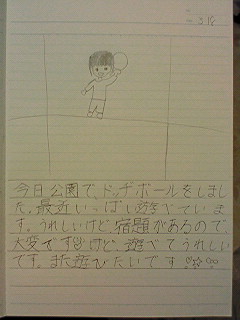 今日公園で、ドッヂボールをしまし
た。最近いっぱい遊べていま
す。うれしいけど宿題があるので、
大変ですけど、遊べてうれしい
です。また遊びたいです♡☆